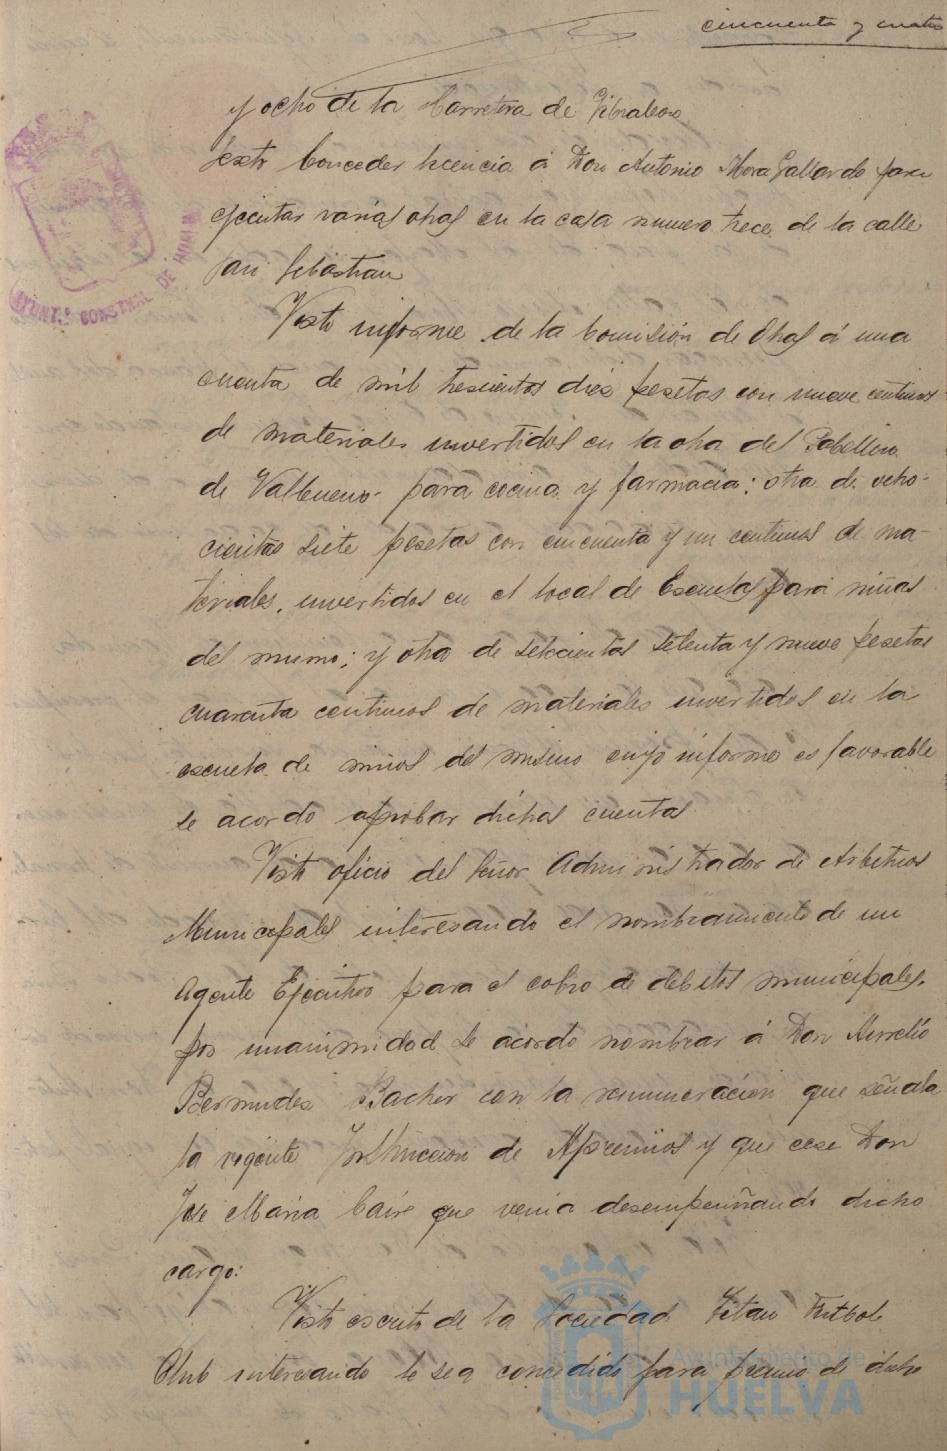 cincuenta y cuatro
y ocho de la Carretera de Gibraleon
Sexto Conceder licencia á Don Antonio Mora Gallardo para
ejecutar varias obras en la casa numero trece de la calle
San Sebastian
Visto informe de la Comisión de Obras á una
cuenta de mil trescientos diez pesetas con nueve centimos
de materiales invertidos en la obra del Pabellon
de Vallbueno para cocina y farmacia; otra de ocho-
cientas siete pesetas con cincuenta y un centimos de ma-
teriales, invertidos en el local de Escuelas para niñas
del mismo; y otra de setecientas setenta y nueve pesetas
cuarenta centimos de materiales invertidos en la
escuela de niños del mismo cuyo informe es favorable
se acordo aprobar dichas cuentas
Visto oficio del Señor Administrador de Arbitrios
Municipales interesando el nombramiento de un
Agente Ejecutivo para el cobro de debitos municipales,
por unanimidad se acordó nombrar á Don Aurelio
Bermudez con la remuneración que señala
la vigente Instruccion de Apremios y que cese Don
Jose Maria que venia desempeñando dicho
cargo:
Visto escrito de la Sociedad Titan Futbol
Club interesando le sea concedido para premio de dicho
AYUNT.º CONSTNAL DE HUELVA
Ayuntamiento de
HUELVA